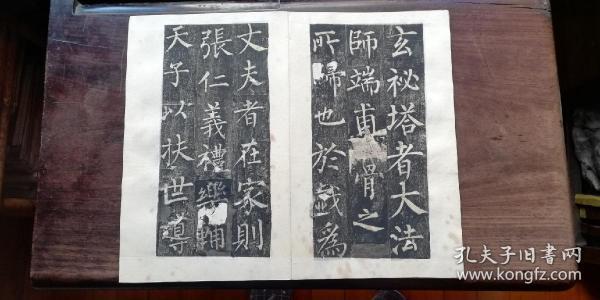 玄祕塔者大法
師端甫骨之
所歸也於戲為
丈夫者在家則
張仁義禮樂輔
天子以扶世導
孔夫子旧书网
www.kongfz.com